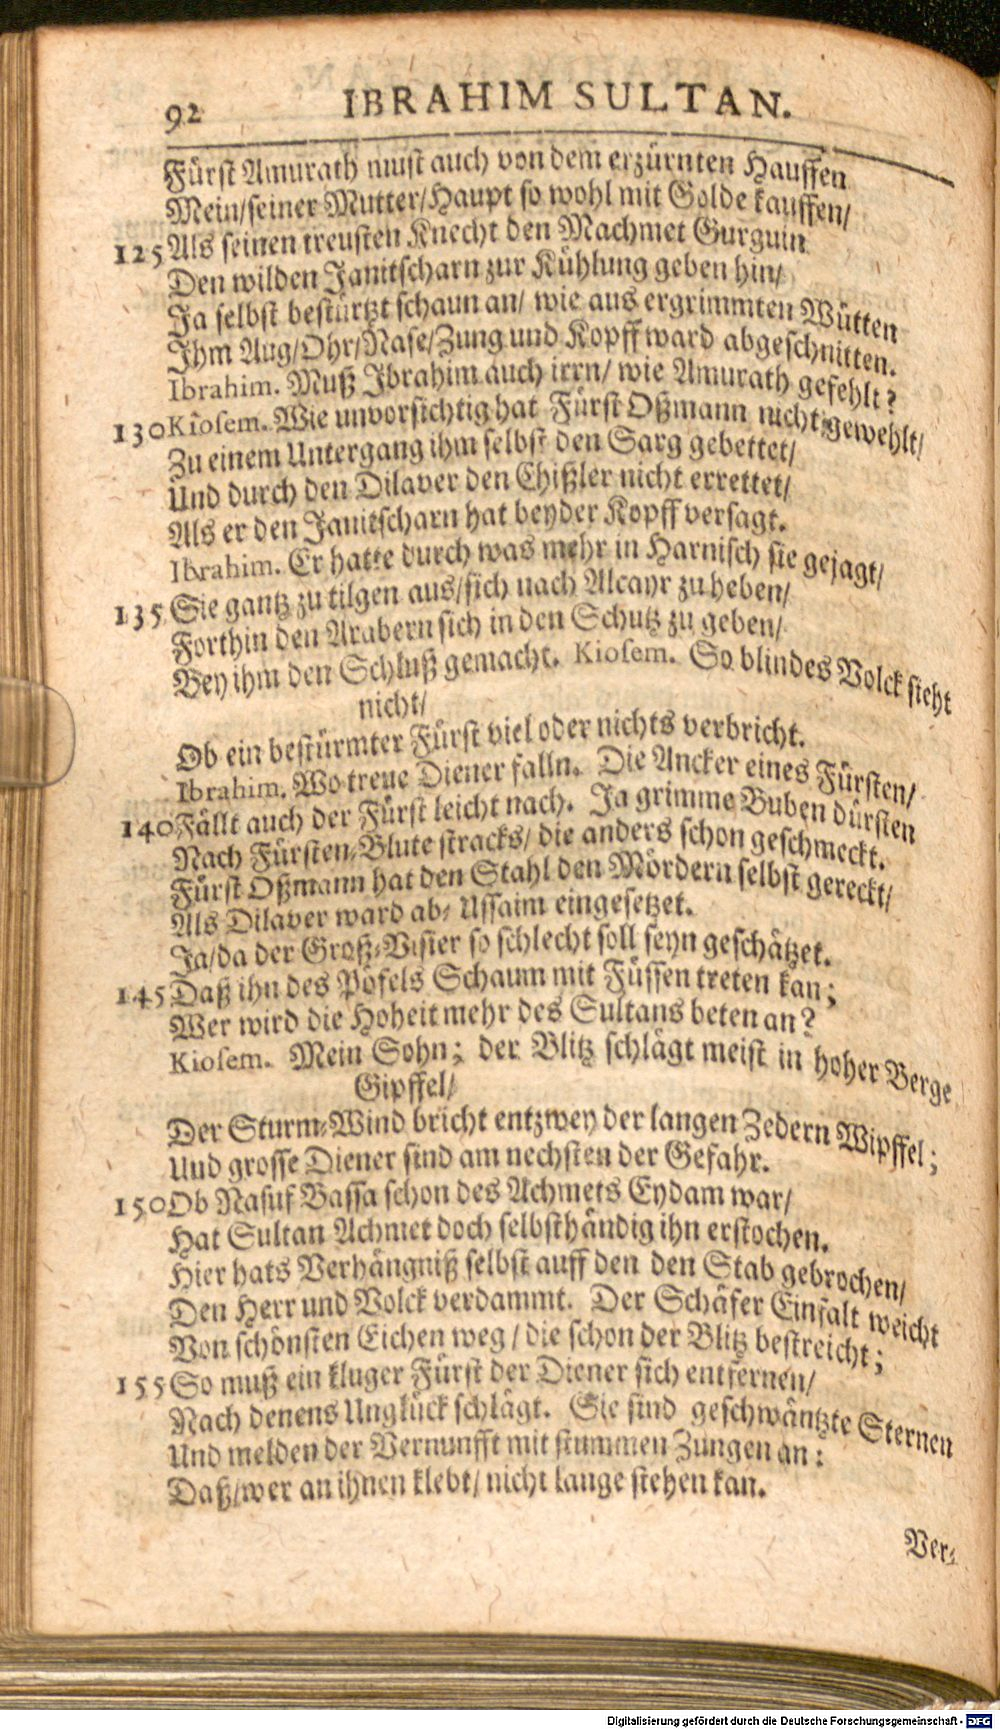 92 IBRAHIM SULTAN.
Fürst Amurath must auch von dem erzürnten Hauffen
Mein/seiner Mutter/Haupt so wohl mit Golde kauffen/
125 Als seinen treusten Knecht den Machmet Gurguin
Den wilden Janitscharn zur Kühlung geben hin/
Ja selbst bestürtzt schaun an/ wie aus ergrimmten Wütten
Ihm Aug/Ohr/Nase/Zung und Kopff ward abgeschnitten.
Ibrahim. Muß Ibrahim auch irrn/ wie Amurath gefehlt?
130 Kiosem. Wie unvorsichtig hat Fürst Oßmann nicht gewehlt/
Zu einem Untergang ihm selbst den Sarg gebettet/
Und durch den Dilaver den Chißler nicht errettet/
Als er den Janitscharn hat beyder Kopff versagt.
Ibrahim. Er hatte durch was mehr in Harnisch sie gejagt/
135 Sie gantz zu tilgen aus/sich nach Alcayr zu heben/
Forthin den Arabern sich in den Schutz zu geben/
Bey ihm den Schluß gemacht. Kiosem. So blindes Volck sieht
nicht/
Ob ein bestürmter Fürst viel oder nichts verbricht.
Ibrahim. Wo treue Diener falln. Die Ancker eines Fürsten/
140 Fällt auch der Fürst leicht nach. Ja grimme Buben dürsten
Nach Fürsten-Blute stracks/ die anders schon geschmeckt.
Fürst Oßmann hat den Stahl den Mördern selbst gereckt/
Als Dilaver ward ab- Ussaim eingesetzet.
Ja/da der Groß-Visier so schlecht soll seyn geschätzet.
145 Daß ihn des Pöfels Schaum mit Füssen treten kan;
Wer wird die Hoheit mehr des Sultans beten an?
Kiosem. Mein Sohn; der Blitz schlägt meist in hoher Berge
Gipffel/
Der Sturm-Wind bricht entzwey der langen Zedern Wipffel;
Und grosse Diener sind am nechsten der Gefahr.
150 Ob Nasuf Bassa schon des Achmets Eydam war/
Hat Sultan Achmet doch selbsthändig ihn erstochen.
Hier hats Verhängniß selbst auff den den Stab gebrochen/
Den Herr und Volck verdammt. Der Schäfer Einfalt weicht
Von schönsten Eichen weg/ die schon der Blitz bestreicht;
155 So muß ein kluger Fürst der Diener sich entfernen/
Nach denens Unglück schlägt. Sie sind geschwäntzte Sternen
Und melden der Vernunfft mit stummen Zungen an:
Daß/wer an ihnen klebt/ nicht lange stehen kan.
Ver-
Digitalisierung gefördert durch die Deutsche Forschungsgemeinschaft - DFG